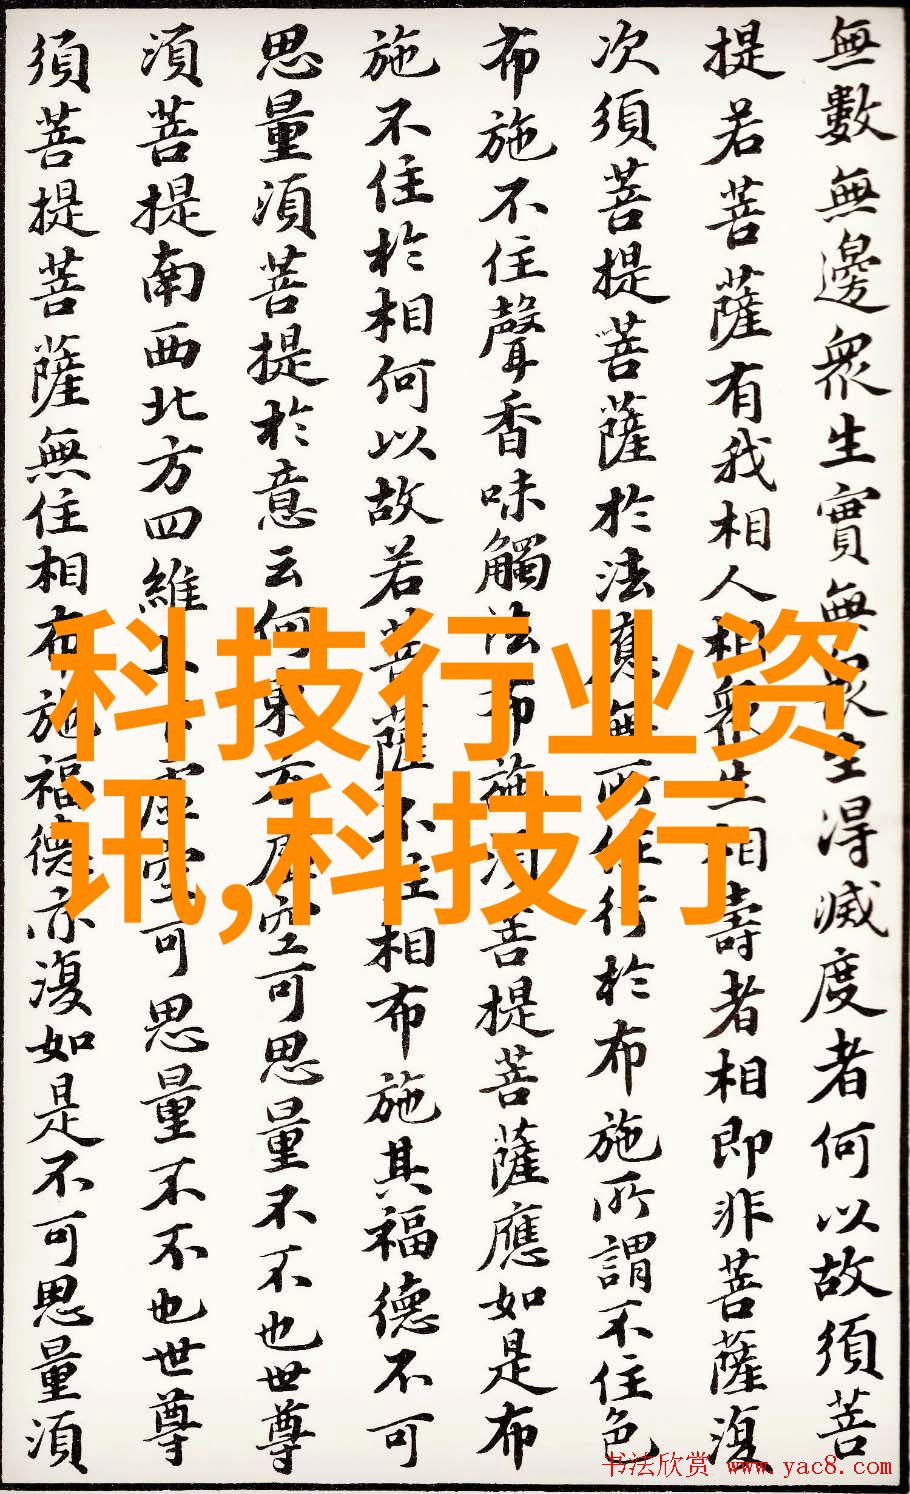 無數無邊衆生實無衆生得滅度者何以故須菩
提若菩薩有我相人相衆生相壽者相即非菩薩復
次須菩提菩薩於法應無所住行於布施所謂不住色
布施不住聲香味觸法布施須菩提菩薩應如是布
施不住於相何以故若菩薩不住相布施其福德不可
思量須菩提於意云何東方虛空可思量不不也世尊
須菩提南西北方四維上下虛空可思量不不也世尊
須菩提菩薩無住相布施福德亦復如是不可思量須
科技行业资
讯,科技行
书法欣赏 www.yac8.com